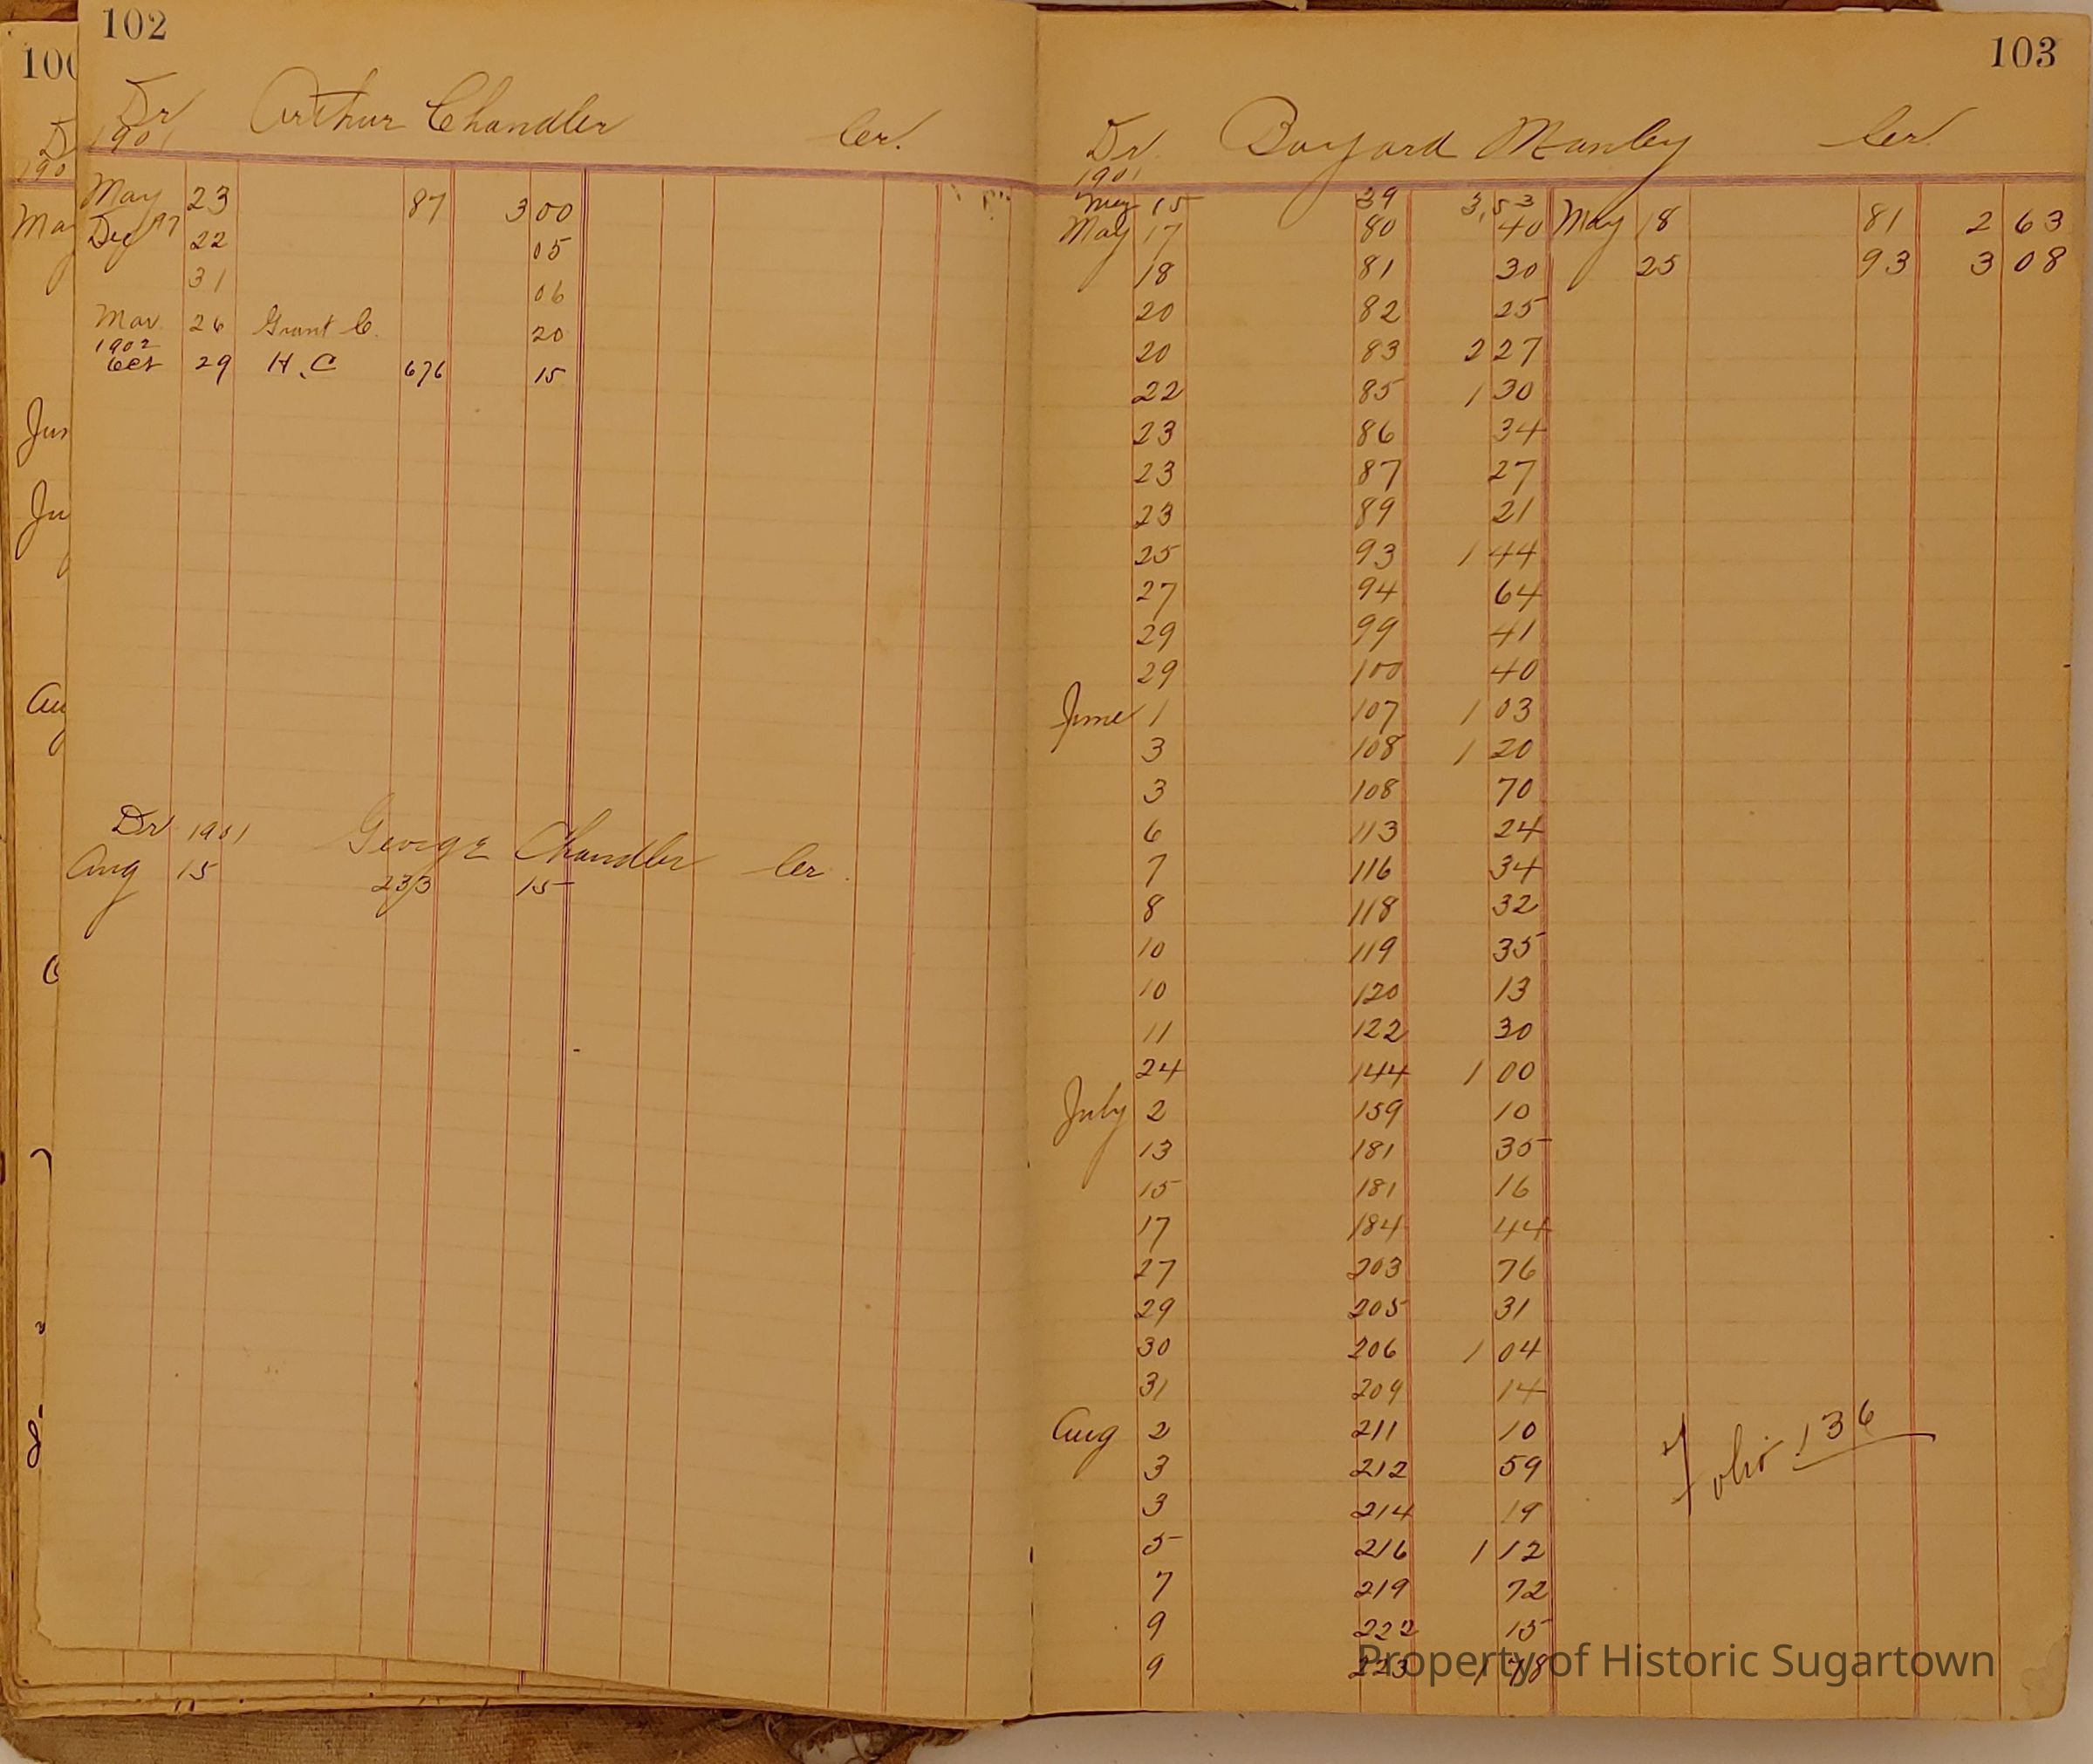 102
Dr Arthur Chandler Cr.
1901
May 23 87 3 00
Dec 22 05
31 06
Mar 26 Grant C. 20
1902
Oct 29 H.C 676 15
Dr 1901 George Chandler Cr
Aug 15 233 15
103
Dr. Bayard Manley Cr
1901
May 15 39 3,53 May 18 81 2 63
May 17 80 40 25 93 3 08
18 81 30
20 82 25
20 83 2 27
22 85 1 30
23 86 34
23 87 27
23 89 21
25 93 1 44
27 94 64
29 99 41
29 100 40
June 1 107 1 03
3 108 1 20
3 108 70
6 113 24
7 116 34
8 118 32
10 119 35
10 120 13
11 122 30
24 144 1 00
July 2 159 10
13 181 35
15 181 16
17 184 44
27 203 76
29 205 31
30 206 1 04
31 209 14
Aug 2 211 10
3 212 59
Folio 136
3 214 19
5 216 1 12
7 219 72
9 222 15
9 223 1 48
Property of Historic Sugartown
100